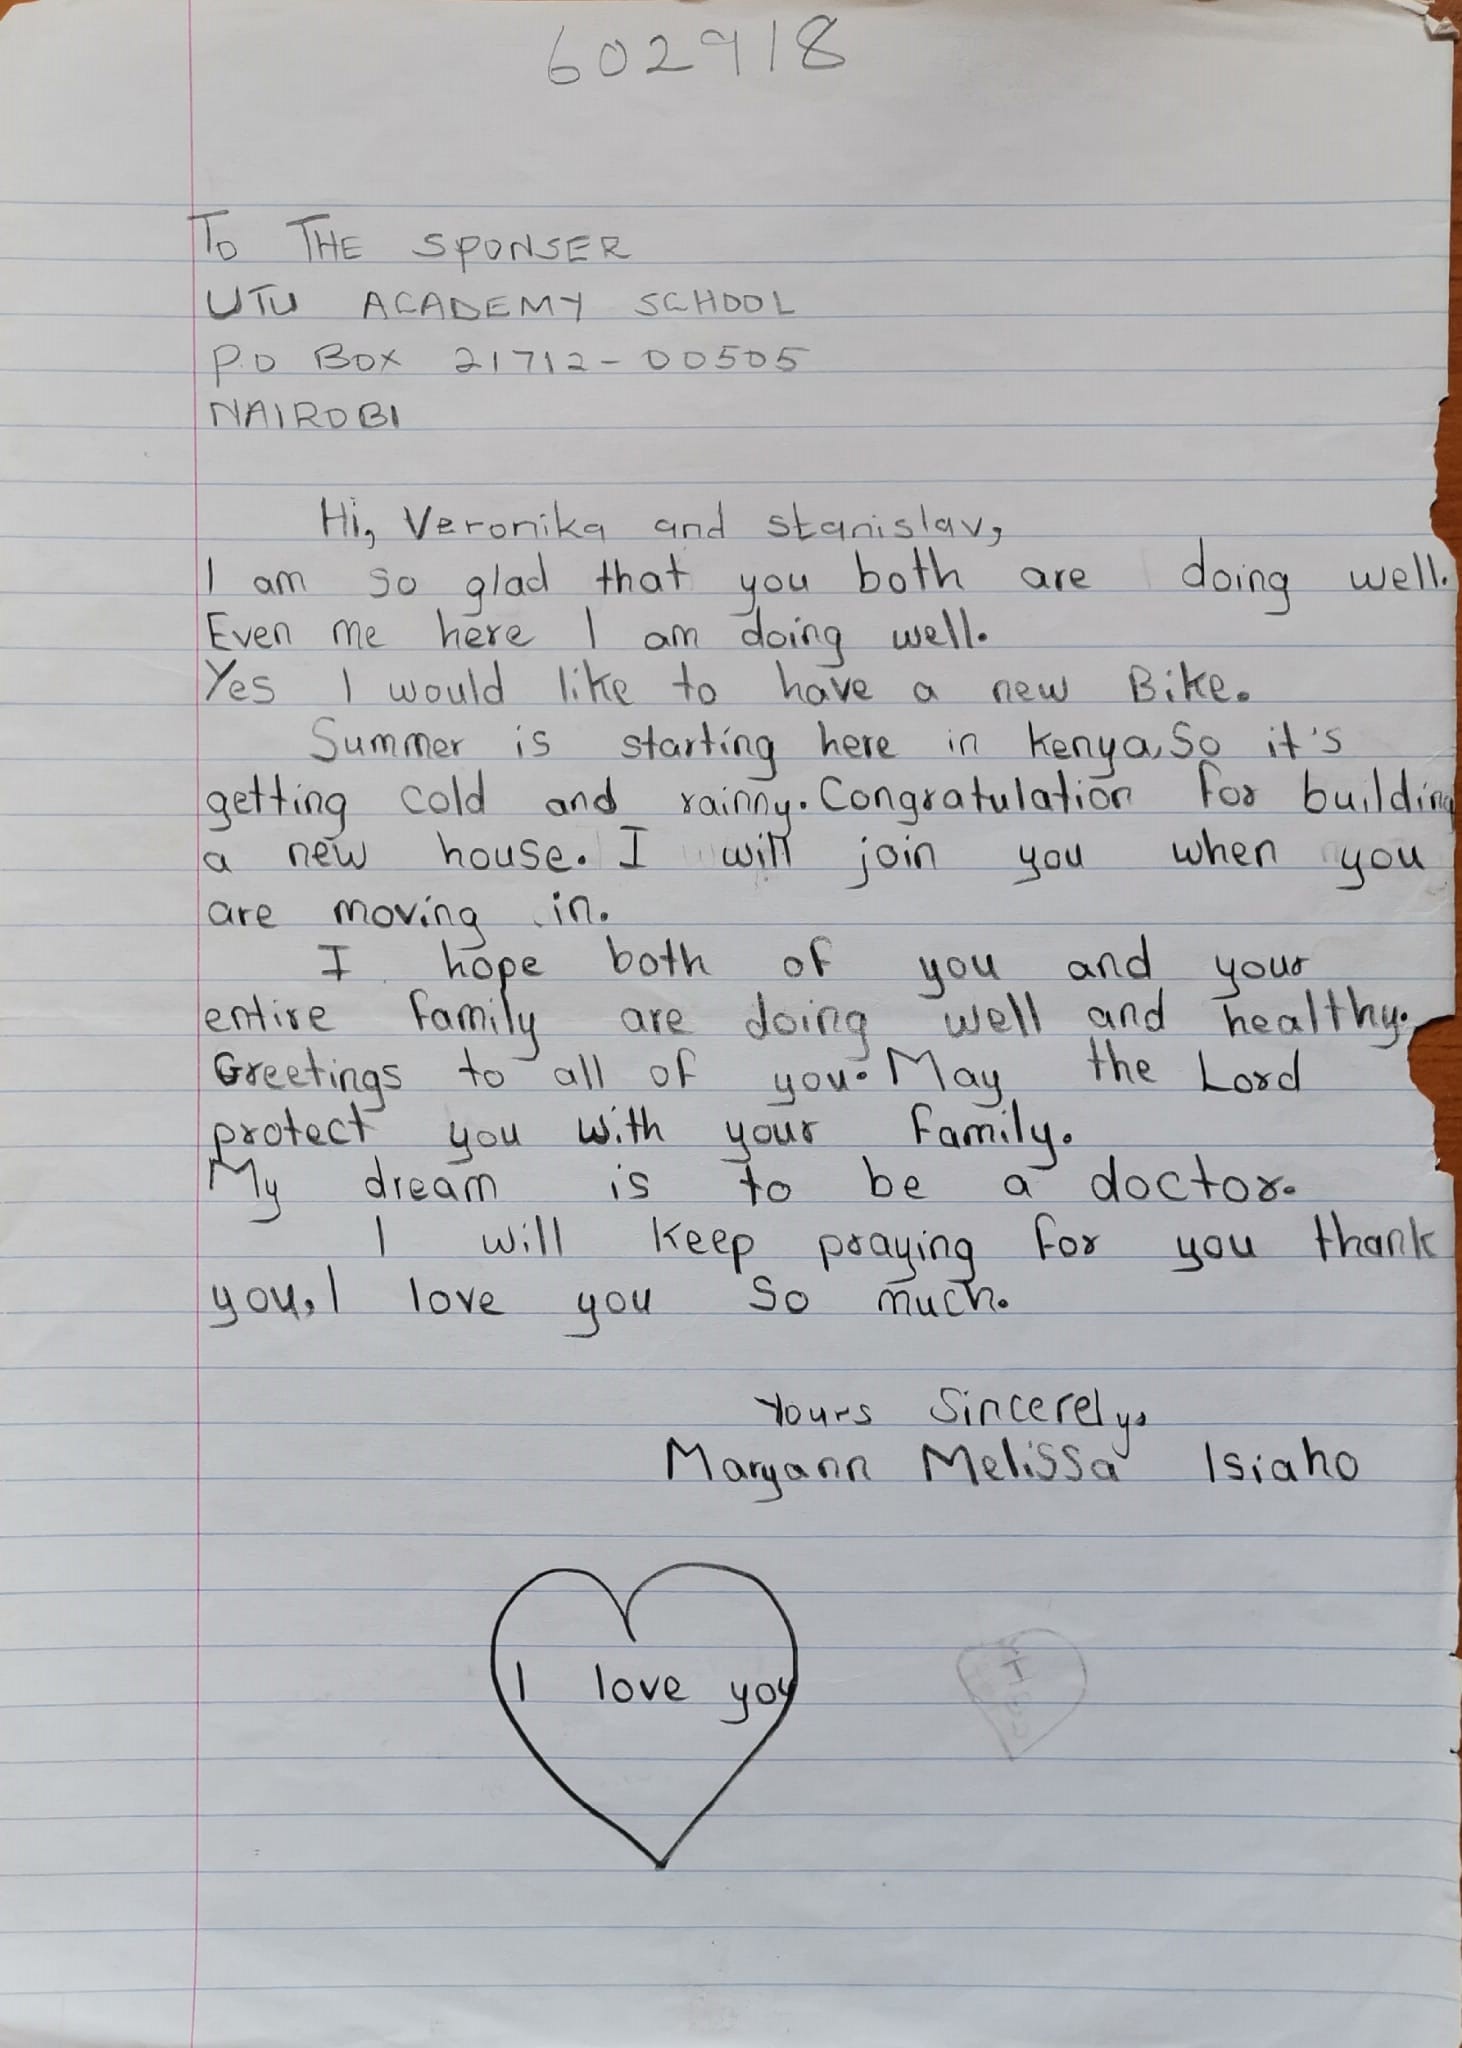 602918
To THE SPONSER
UTU ACADEMY SCHOOL
P.O BOX 21712-00505
NAIROBI
Hi, Veronika and stanislav,
I am so glad that you both are doing well.
Even me here I am doing well.
Yes I would like to have a new Bike.
Summer is starting here in Kenya, So it's
getting cold and rainny. Congratulation for building
a new house. I will join you when you
are moving in.
I hope both of you and your
entire family are doing well and healthy.
Greetings to all of you. May the Lord
protect you with your family.
My dream is to be a doctor.
I will keep praying for you thank
you, I love you so much.
Yours Sincerely,
Maryann Melissa Isiaho
I love you